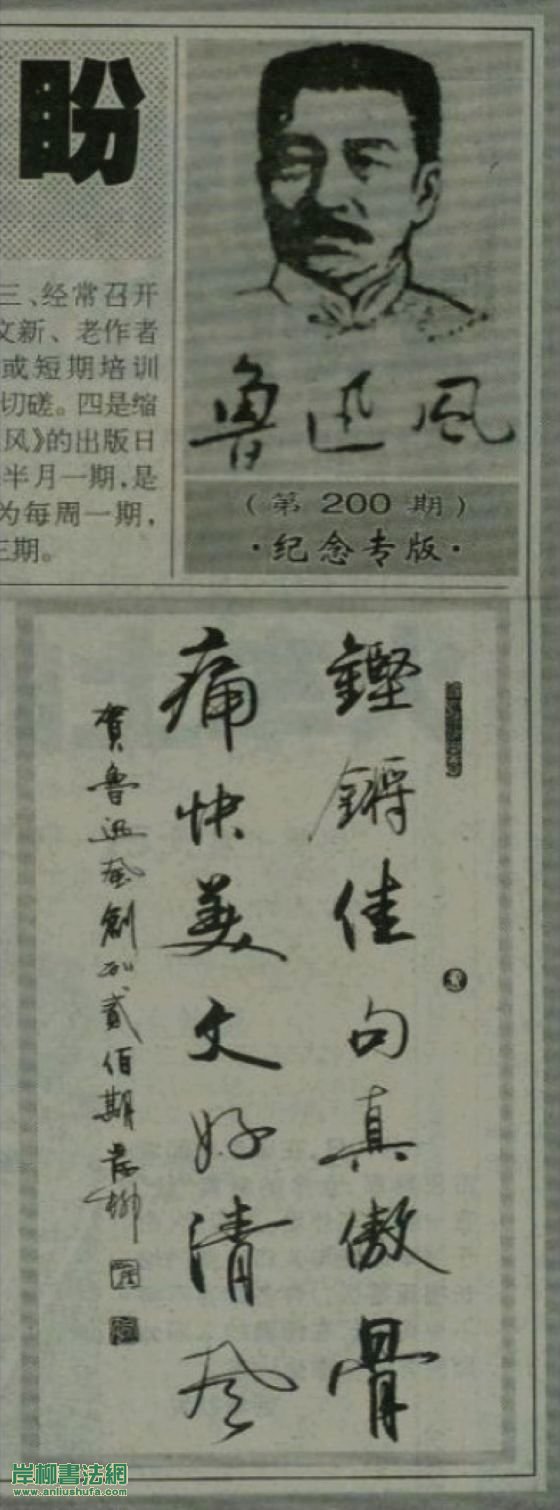 盼
三、经常召开
文新、老作者
或短期培训
切磋。四是缩
风》的出版日
半月一期，是
为每周一期，
三期。
鲁迅风
（第200期）
·纪念专版·
鏗鏘佳句真傲骨
痛快美文好清风
贺鲁迅風創刊贰佰期岸柳
岸柳書法網
www.anliushufa.com